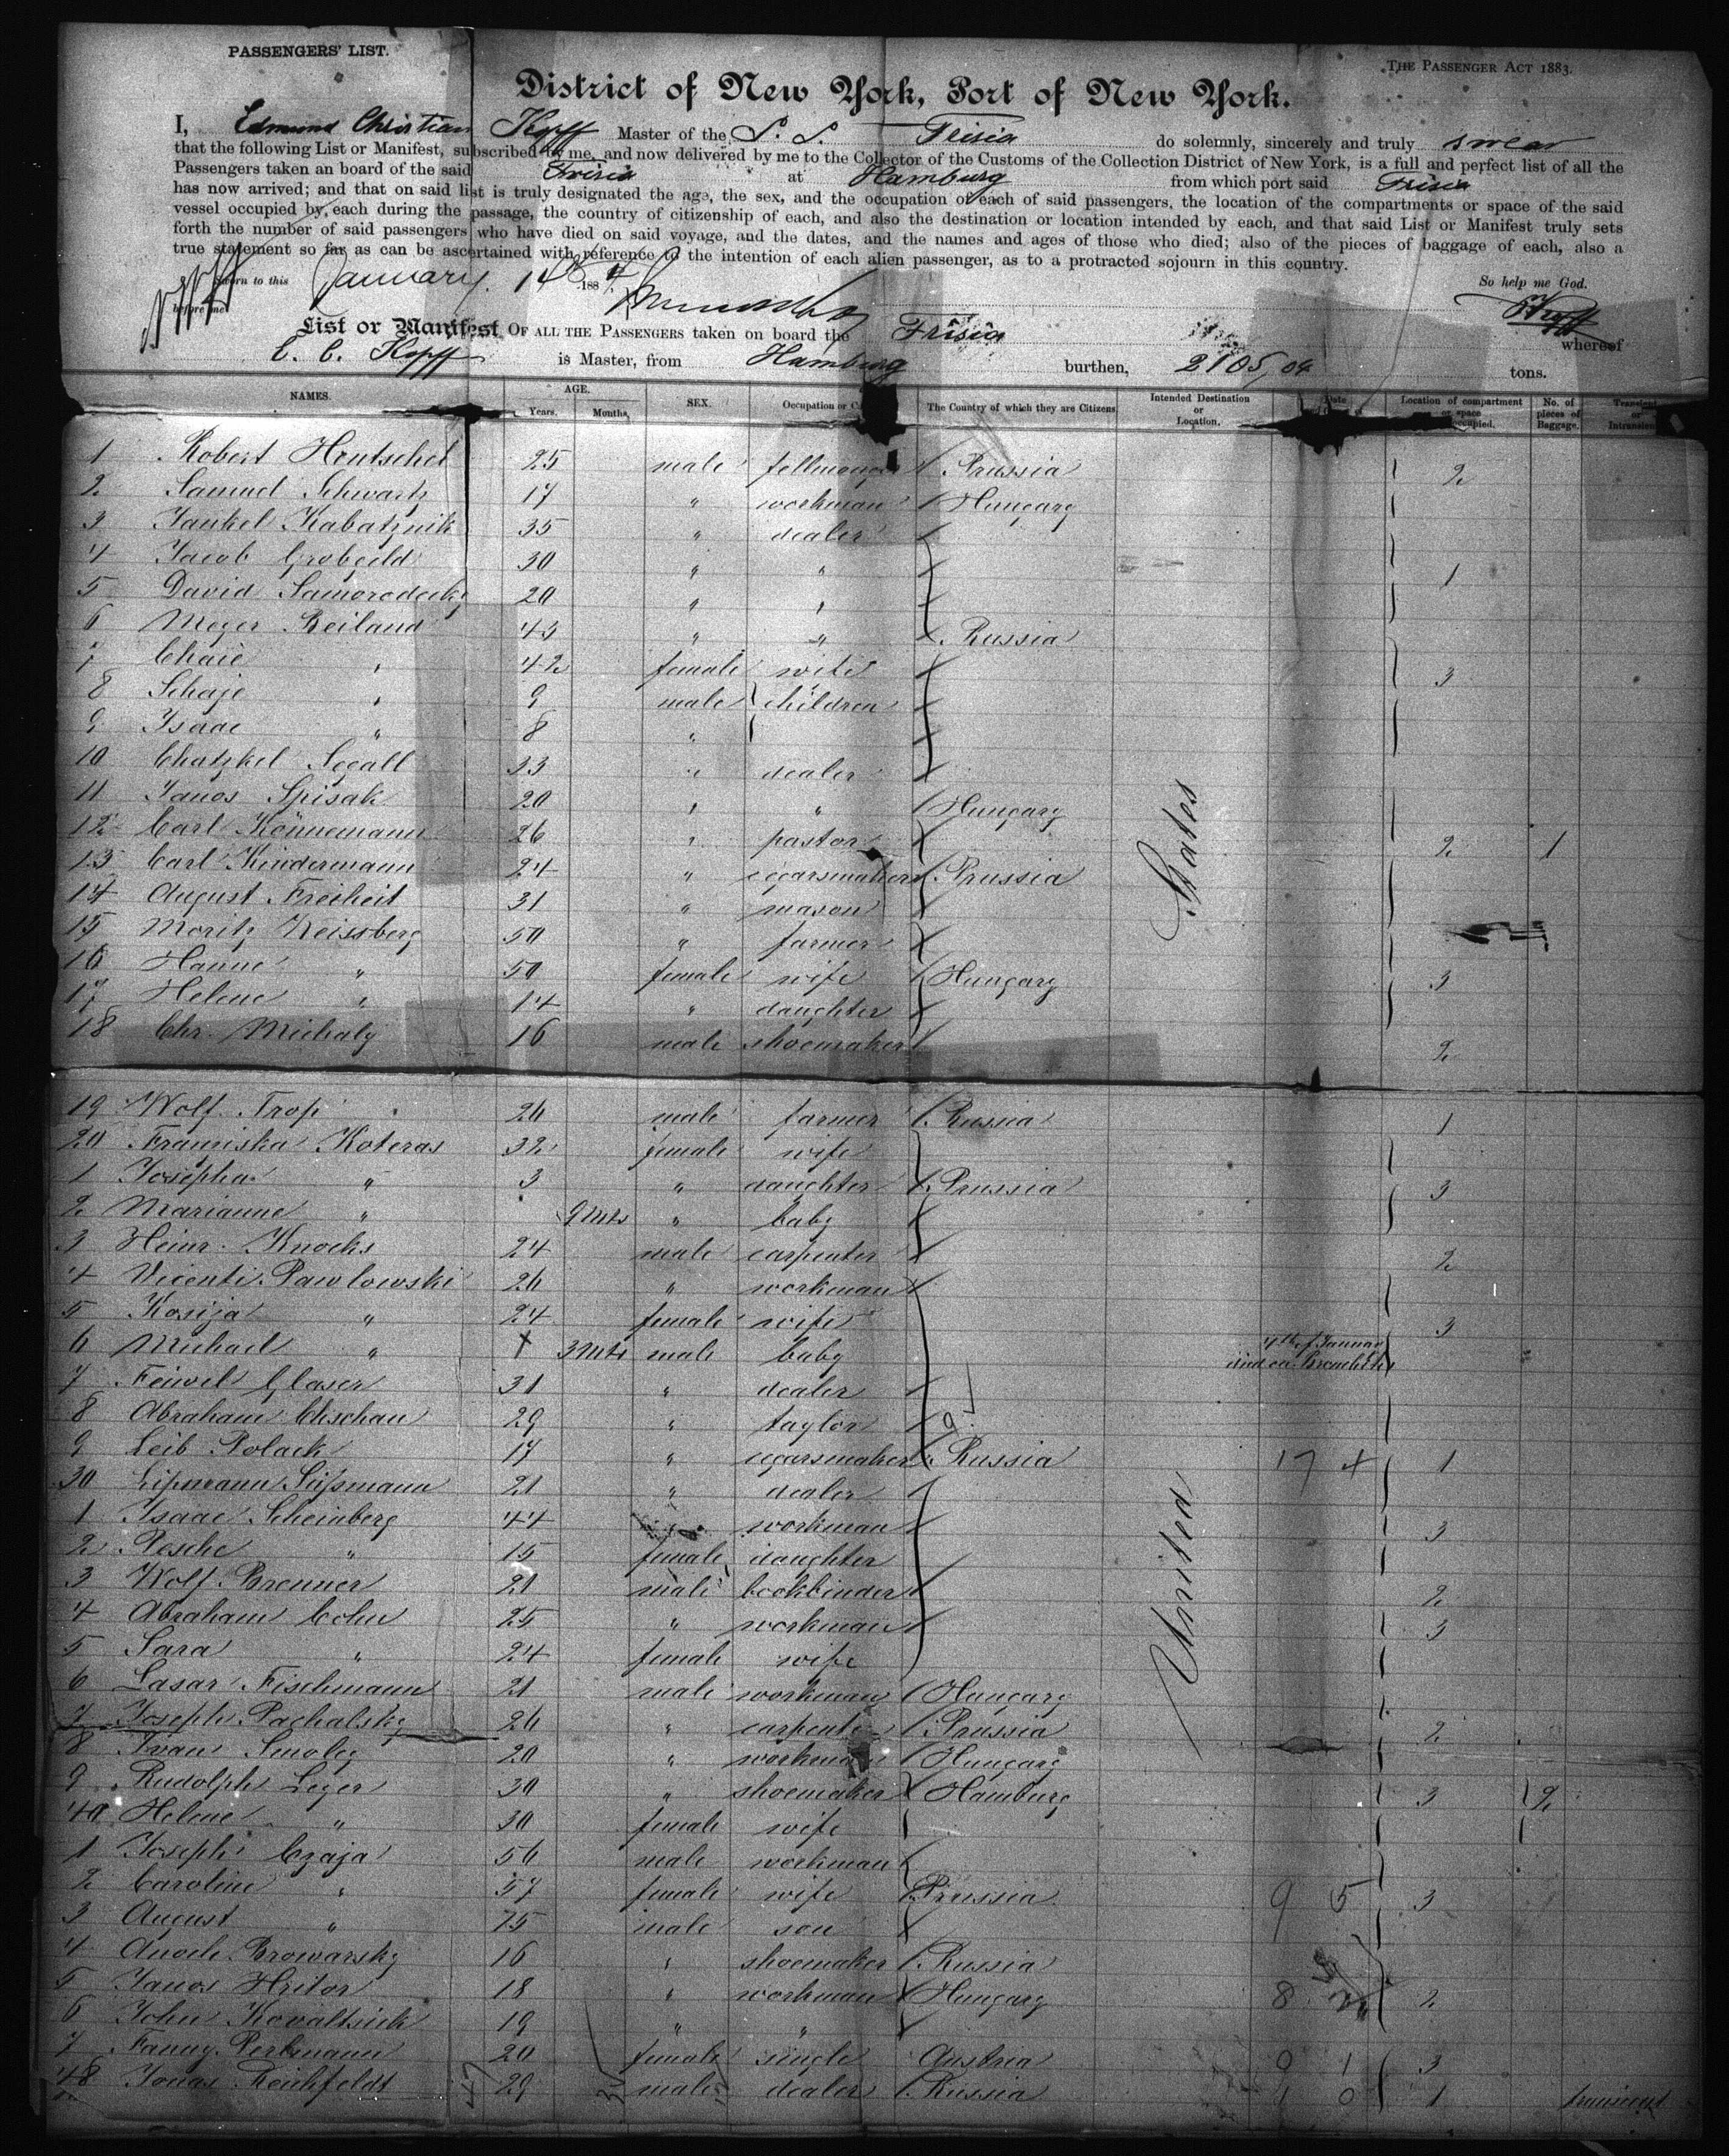 PASSENGERS' LIST.
THE PASSENGER ACT 1883.
District of New York, Port of New York.
I, Edmund Christian Kopff Master of the S. S. Frisia do solemnly, sincerely and truly swear
that the following List or Manifest, subscribed by me, and now delivered by me to the Collector of the Customs of the Collection District of New York, is a full and perfect list of all the
Passengers taken an board of the said Frisia at Hamburg from which port said Frisia
has now arrived; and that on said list is truly designated the age, the sex, and the occupation of each of said passengers, the location of the compartments or space of the said
vessel occupied by each during the passage, the country of citizenship of each, and also the destination or location intended by each, and that said List or Manifest truly sets
forth the number of said passengers who have died on said voyage, and the dates, and the names and ages of those who died; also of the pieces of baggage of each, also a
true statement so far as can be ascertained with reference to the intention of each alien passenger, as to a protracted sojourn in this country.
Sworn to this January 14th 1884 So help me God.
before me
List or Manifest OF ALL THE PASSENGERS taken on board the Frisia whereof
E. C. Kopff is Master, from Hamburg burthen, 2105,04 tons.
NAMES. AGE. Years. Months. SEX. Occupation or The Country of which they are Citizens. Intended Destination or Location. Date Location of compartment or space occupied. No. of pieces of Baggage. Transient or
1 Robert Hentschel 25 male fellmonger Prussia 2
2 Samuel Schwartz 17 " workman Hungary
3 Jankel Kabatznik 35 " dealer
4 Jacob Grobgeld 30 " " 1
5 David Samorodecki 20 " "
6 Meyer Reiland 43 " " Russia
7 Chaie " 42 female wife 3
8 Schaje " 9 male children
9 Isaac " 8 "
10 Chatzkel Segall 33 " dealer
11 Janos Spisak 20 " " Hungary
12 Carl Könnemann 26 " pastor 2 1
13 Carl Kindermann 24 " cigarsmaker Prussia
14 August Freiheit 31 " mason
15 Moritz Weissberg 50 " farmer
16 Hanne " 50 female wife Hungary 3
17 Helene " 14 " daughter
18 Chr. Michaly 16 male shoemaker 2
19 Wolf Trop 26 male farmer Russia 1
20 Franziska Koteras 32 female wife
1 Josepha " 3 " daughter Prussia 3
2 Marianne " 9 Mts " baby
3 Heinr. Knocks 24 male carpenter 2
4 Vicenti Pawlowski 26 " workman
5 Kosija " 24 female wife 3
6 Michael " 3 Mts male baby 4th of January
7 Feiwel Glaser 31 " dealer
8 Abraham Chischau 29 " taylor
9 Leib Polack 17 " cigarsmaker Russia 17 4 1
30 Lipmann Süssmann 21 " dealer
1 Isaac Scheinberg 44 workman 3
2 Pesche " 15 female daughter
3 Wolf Brenner 21 male bookbinder 2
4 Abraham Cohn 25 " workman 3
5 Sara " 24 female wife
6 Lasar Fischmann 21 male workman Hungary
7 Joseph Pachalsky 26 " carpenter Prussia 2
8 Ivan Smoley 20 " workman Hungary
9 Rudolph Leger 30 " shoemaker Hamburg 3 2
40 Helene " 30 female wife
1 Joseph Czaja 56 male workman
2 Caroline " 57 female wife Prussia 9 5 3
3 August " 15 male son
4 Anoch Browarsky 16 " shoemaker Russia
5 Janos Hritor 18 " workman Hungary 8 2
6 John Kovaltsick 19 " "
7 Fanny Perlmann 20 female single Austria 0 1 3
48 Jonas Reichfeldt 29 male dealer Russia 1 0 1 transient
United States